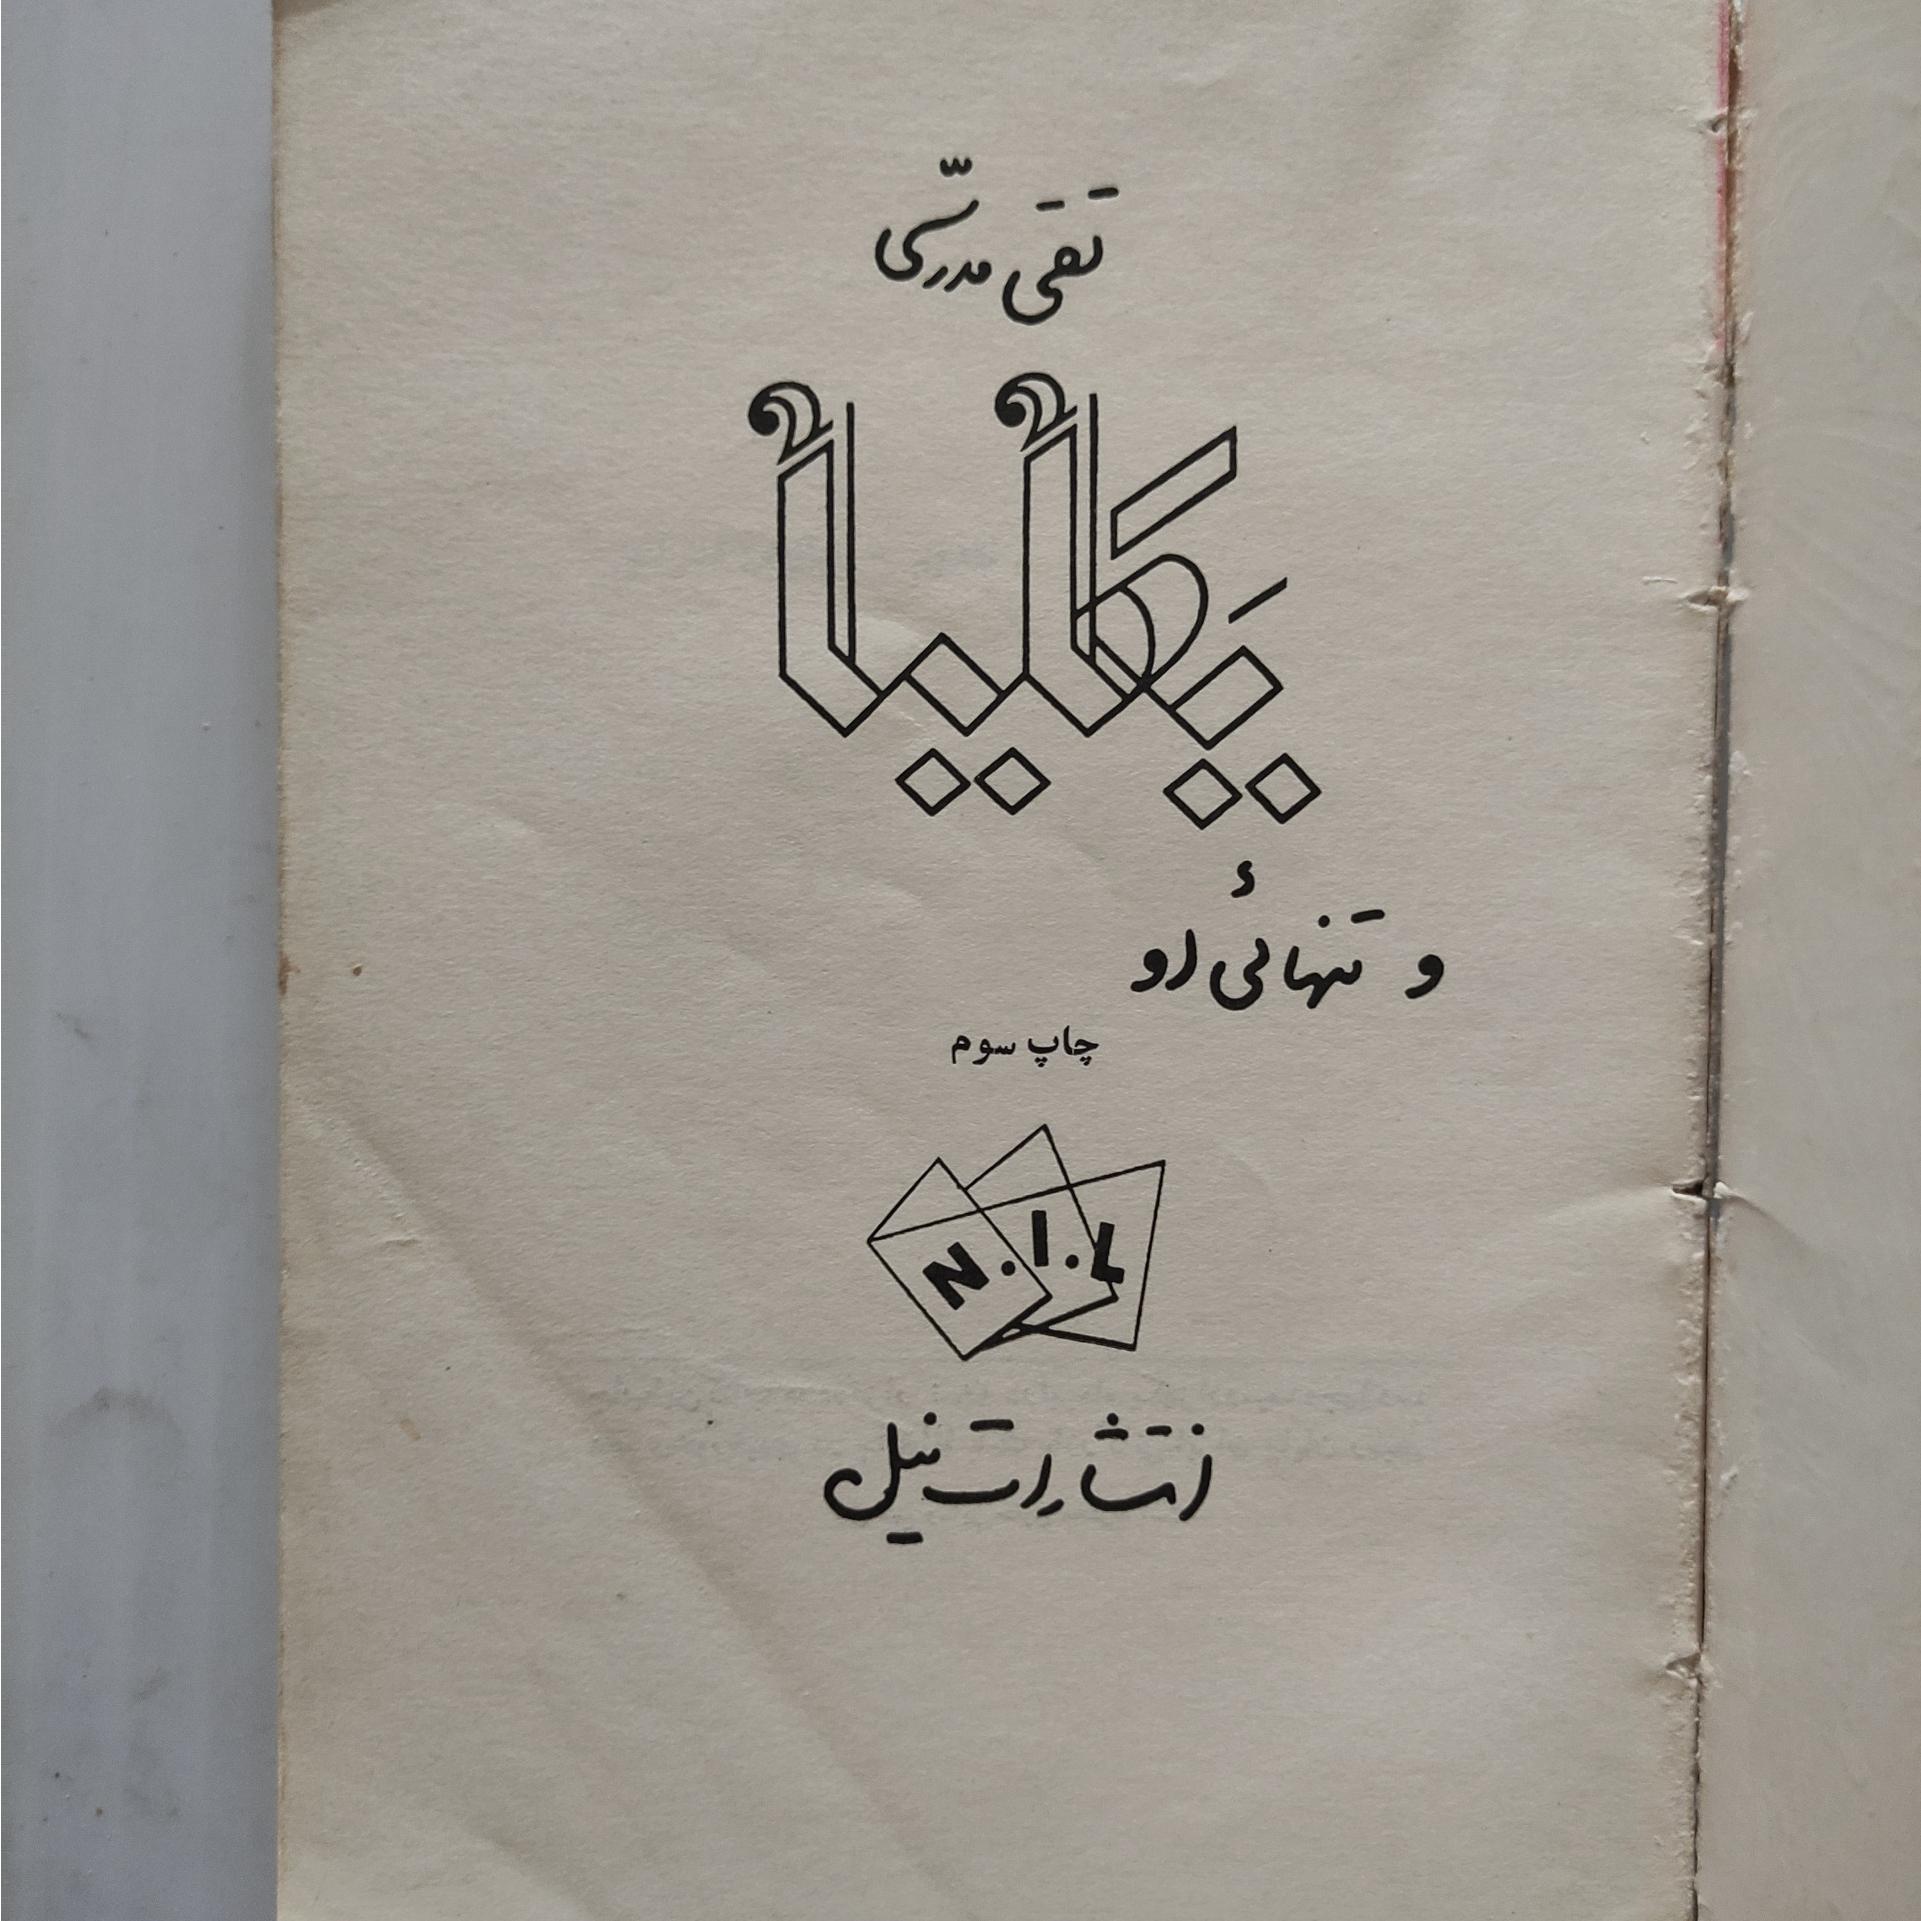 تقی مدرّسی
یَکلیا
و تنهائی او
چاپ سوم
N.I.L
انتشارات نیل